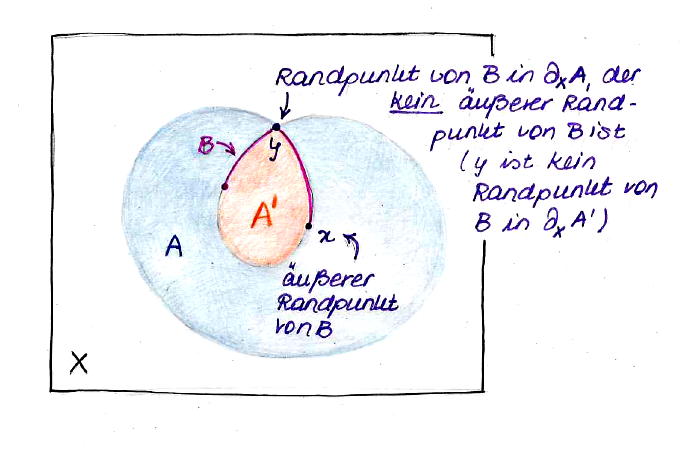 Randpunkt von B in ∂ₓA, der
kein äußerer Rand-
punkt von B ist
(y ist kein
Randpunkt von
B in ∂ₓA')
B
y
A'
x
A
äußerer
Randpunkt
von B
X